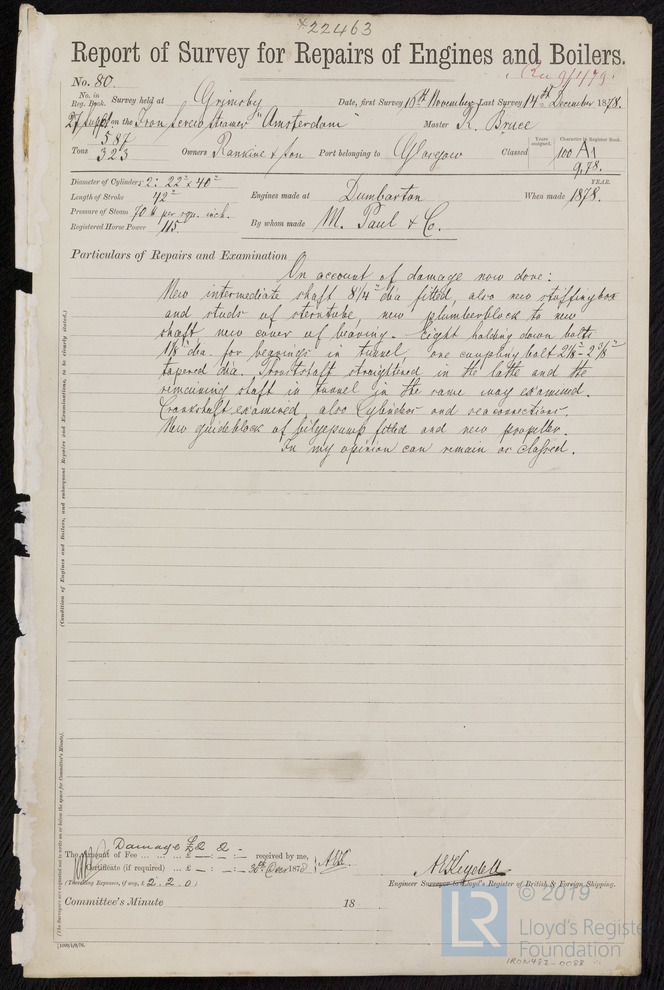 *22463
Report of Survey for Repairs of Engines and Boilers.
No. 80.
Rec 9/1/79.
No. in Reg. Book. Survey held at Grimsby Date, first Survey 15th November Last Survey 14th December 1878.
on the Iron screw steamer "Amsterdam" Master R. Bruce
Tons 587 323 Owners Rankine & Son Port belonging to Glasgow Classed Years assigned. 100 Character in Register Book. A1 9,78.
Diameter of Cylinders 2: 22" & 40"
Length of Stroke 42"
Pressure of Steam 70 lb per squ. inch.
Registered Horse Power 115.
Engines made at Dumbarton When made YEAR. 1878.
By whom made M. Paul & C.
Particulars of Repairs and Examination
On account of damage now done:
New intermediate shaft 8 1/4" dia fitted, also new stuffingbox
and studs of sterntube, new plumberblock to new
shaft new cover of bearing. Eight holding down bolts
1 1/8" dia. for bearings in tunnel, one coupling bolt 2 1/8" - 2 3/8"
tapered dia. Thrustshaft straightened in the lathe and the
remaining shaft in tunnel in the same way examined.
Crankshaft examined, also Cylinders and seaconnections.
New guideblock of bilgepump fitted and new propeller.
In my opinion can remain as classed.
(Condition of Engines and Boilers, and subsequent Repairs and Examinations, to be clearly stated.)
(The Surveyors are requested not to write on or below the space for Committee's Minute).
Damage £2 2 -
The Amount of Fee ... £ — : — : — received by me,
Certificate (if required) ... £ — : — : — 30th Dec 1878
(Travelling Expenses, if any, £ 2. 2. 0)
Engineer Surveyor to Lloyd's Register of British & Foreign Shipping.
Committee's Minute 18
LR
© 2019
Lloyd's Register
Foundation
IRON482-0088